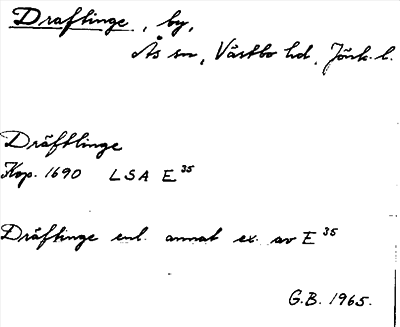 Draftinge, by,
Ås sn, Västbo hd, Jönk. l.
Dräfttinge
Kop. 1690 LSA E 35
Dräftinge enl. annat ex. av E 35
G.B. 1965.